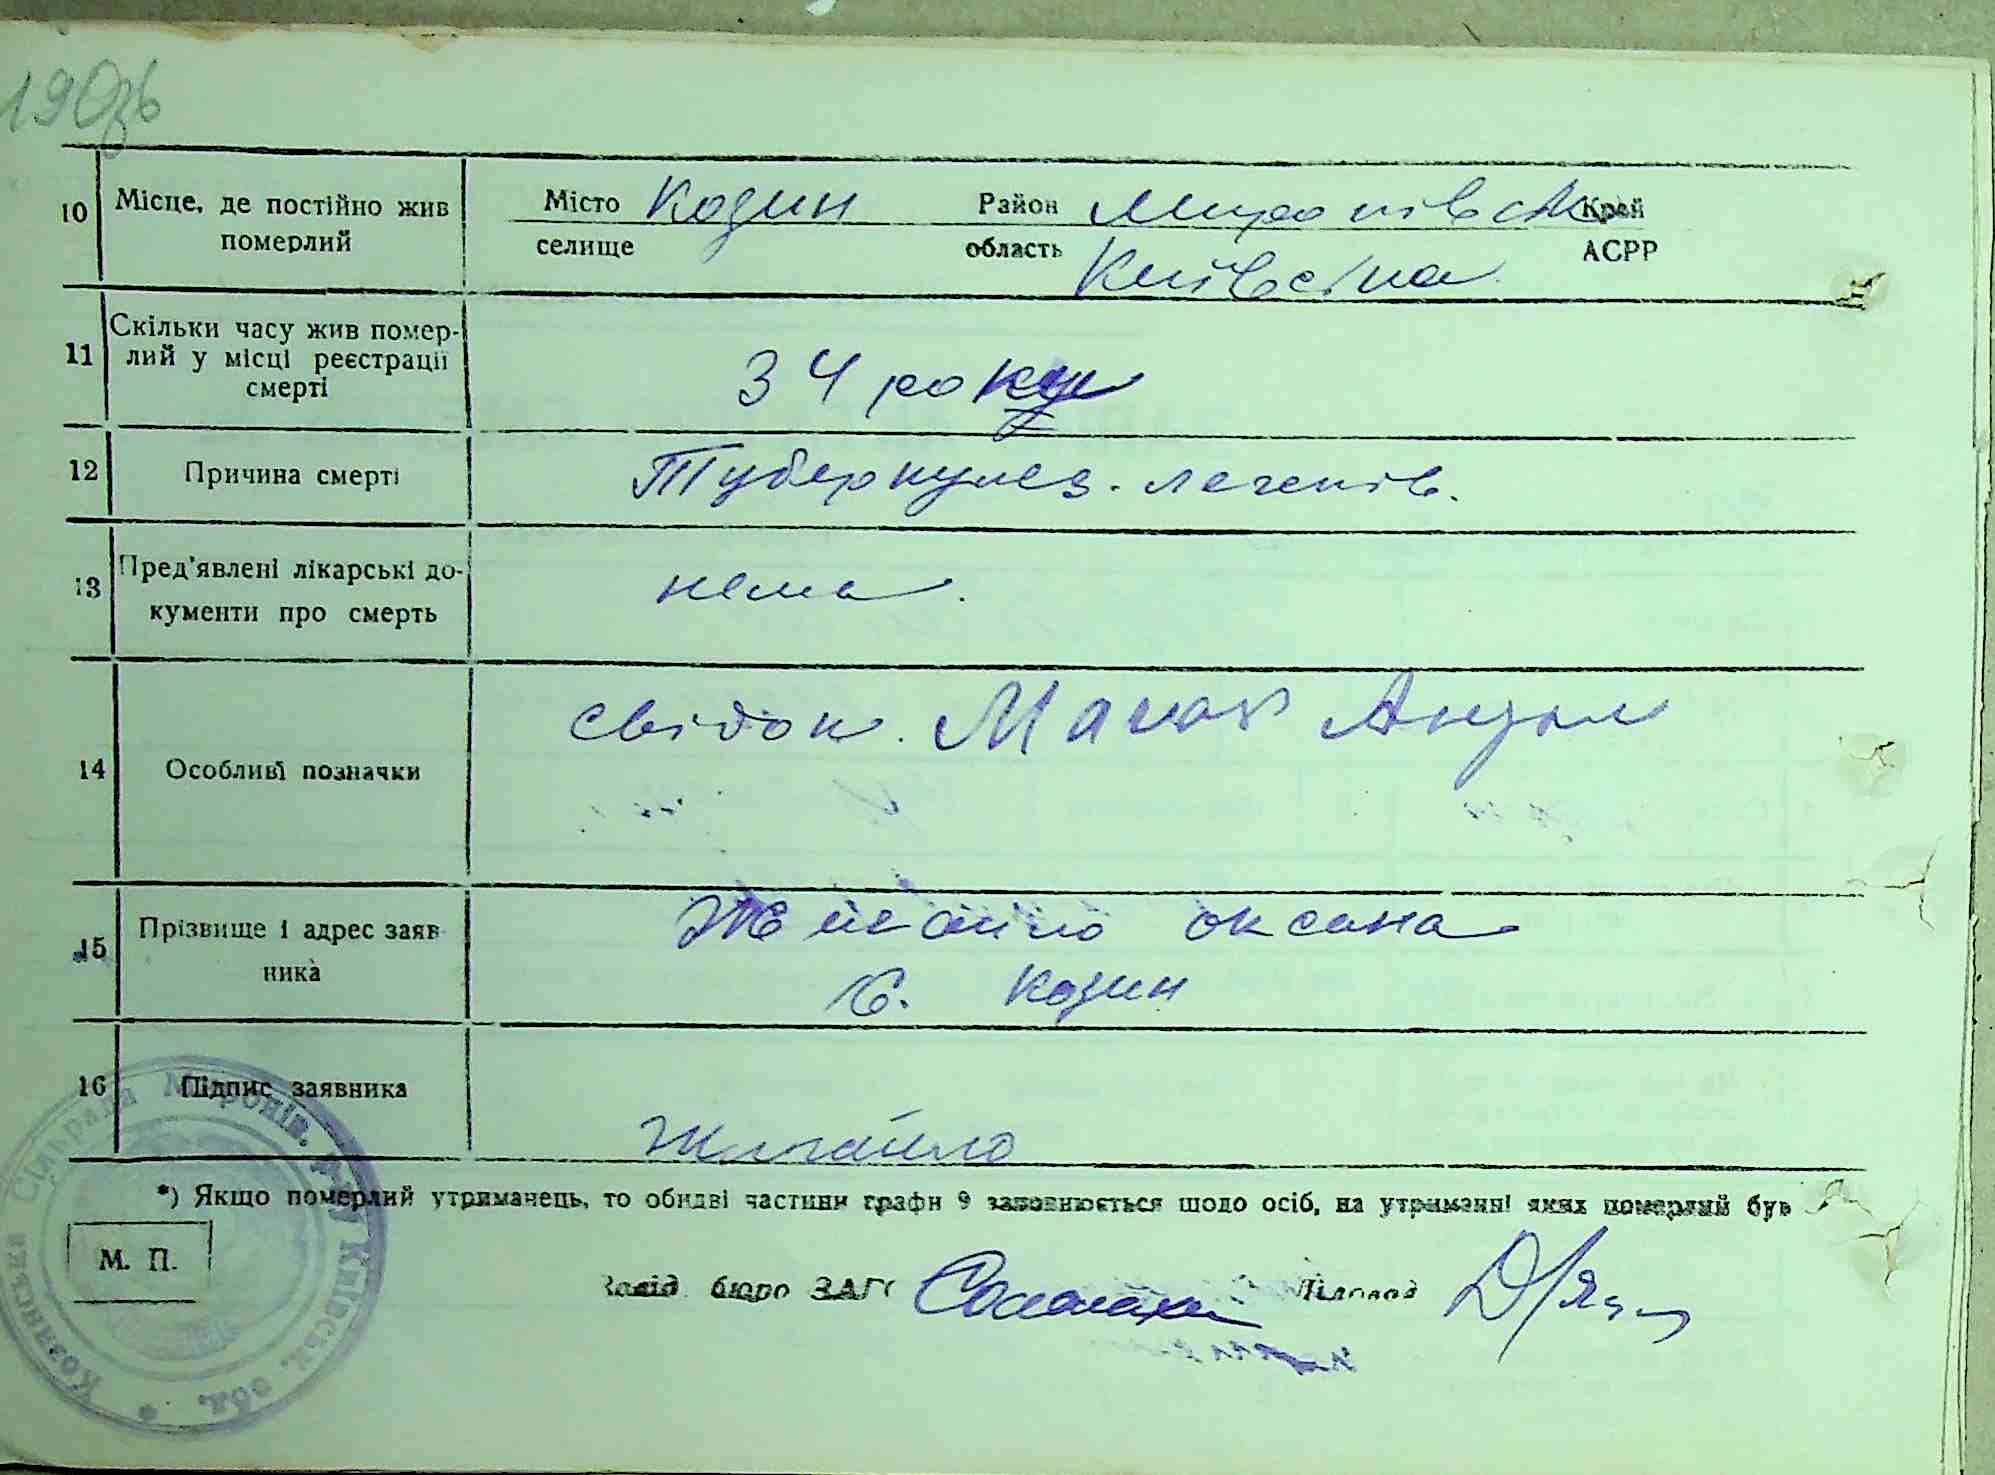 190зв
10 Місце, де постійно жив померлий
Місто Козин Район Миронівськ Край
селище область Київсіка АСРР
11 Скільки часу жив помер-
лий у місці реєстрації
смерті
34 роки
12 Причина смерті Туберкулез. легенів.
13 Пред'явлені лікарські до-
кументи про смерть
нема.
14 Особливі позначки
свідок.
15 Прізвище і адрес заяв
ника
оксана
с. Козин
16 Підпис заявника
*) Якщо померлий утриманець, то обидві частини графи 9 заповнюється щодо осіб, на утриманні яких померлий був
М. П.
Завід. бюро ЗАГС Діловод
Козинська Сільрада Миронів. р-ну Київськ. обл. *